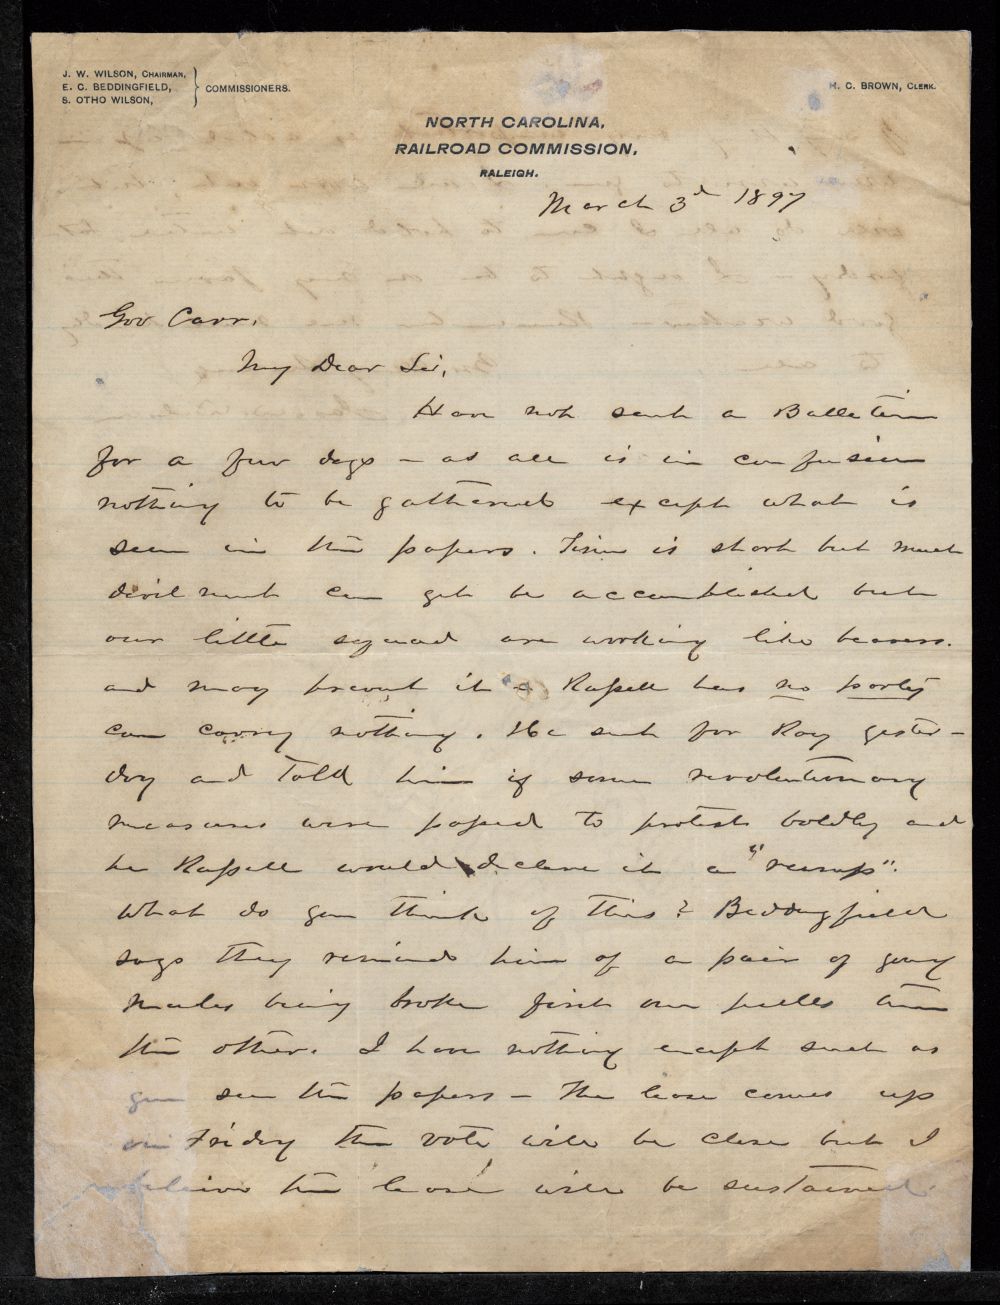 J. W. WILSON, CHAIRMAN,
E. C. BEDDINGFIELD,
S. OTHO WILSON,
COMMISSIONERS.
H. C. BROWN, CLERK.
NORTH CAROLINA,
RAILROAD COMMISSION,
RALEIGH.
March 3d 1897
Gov Carr.
My Dear Sir,
Have not sent a Balletin
for a few days – as all is in confusion
nothing to be gathered except what is
seen in the papers. Time is short but much
devilment can get be accomplished but
our little squad are working like beavers.
and may prevent it – Russell has no party
can carry nothing. He sent for Ray yester–
day and told him if some revolutionary
measures were passed to protest boldly and
he Russell would declare it a "rump".
What do you think of this? Beddingfield
says they reminds him of a pair of young
mules being broke first one pulls then
the other. I have nothing except such as
you see in the papers – The lease comes up
on Friday the vote will be close but I
believe the lease will be sustained.